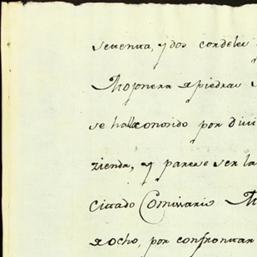 setenta, y dos cordeles
Mojonera de piedras
se halla conosido por Divi
zienda, y parese ser la
citado Comissario
de ocho, por confrontar